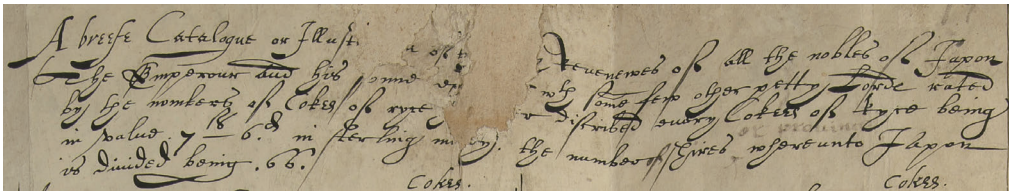 A breefe Catalogue or Illust of t Revenewes of all the nobles of Japon
the Emperour and his sonne wth some few other petty Lords rated
by the nombers of Cokes of ryce discribed every Coke of Ryce being
in value . 7 s 6 d in sterling the number of shires whereunto Japon
is divided being . 66 .
Cokes. Cokes.